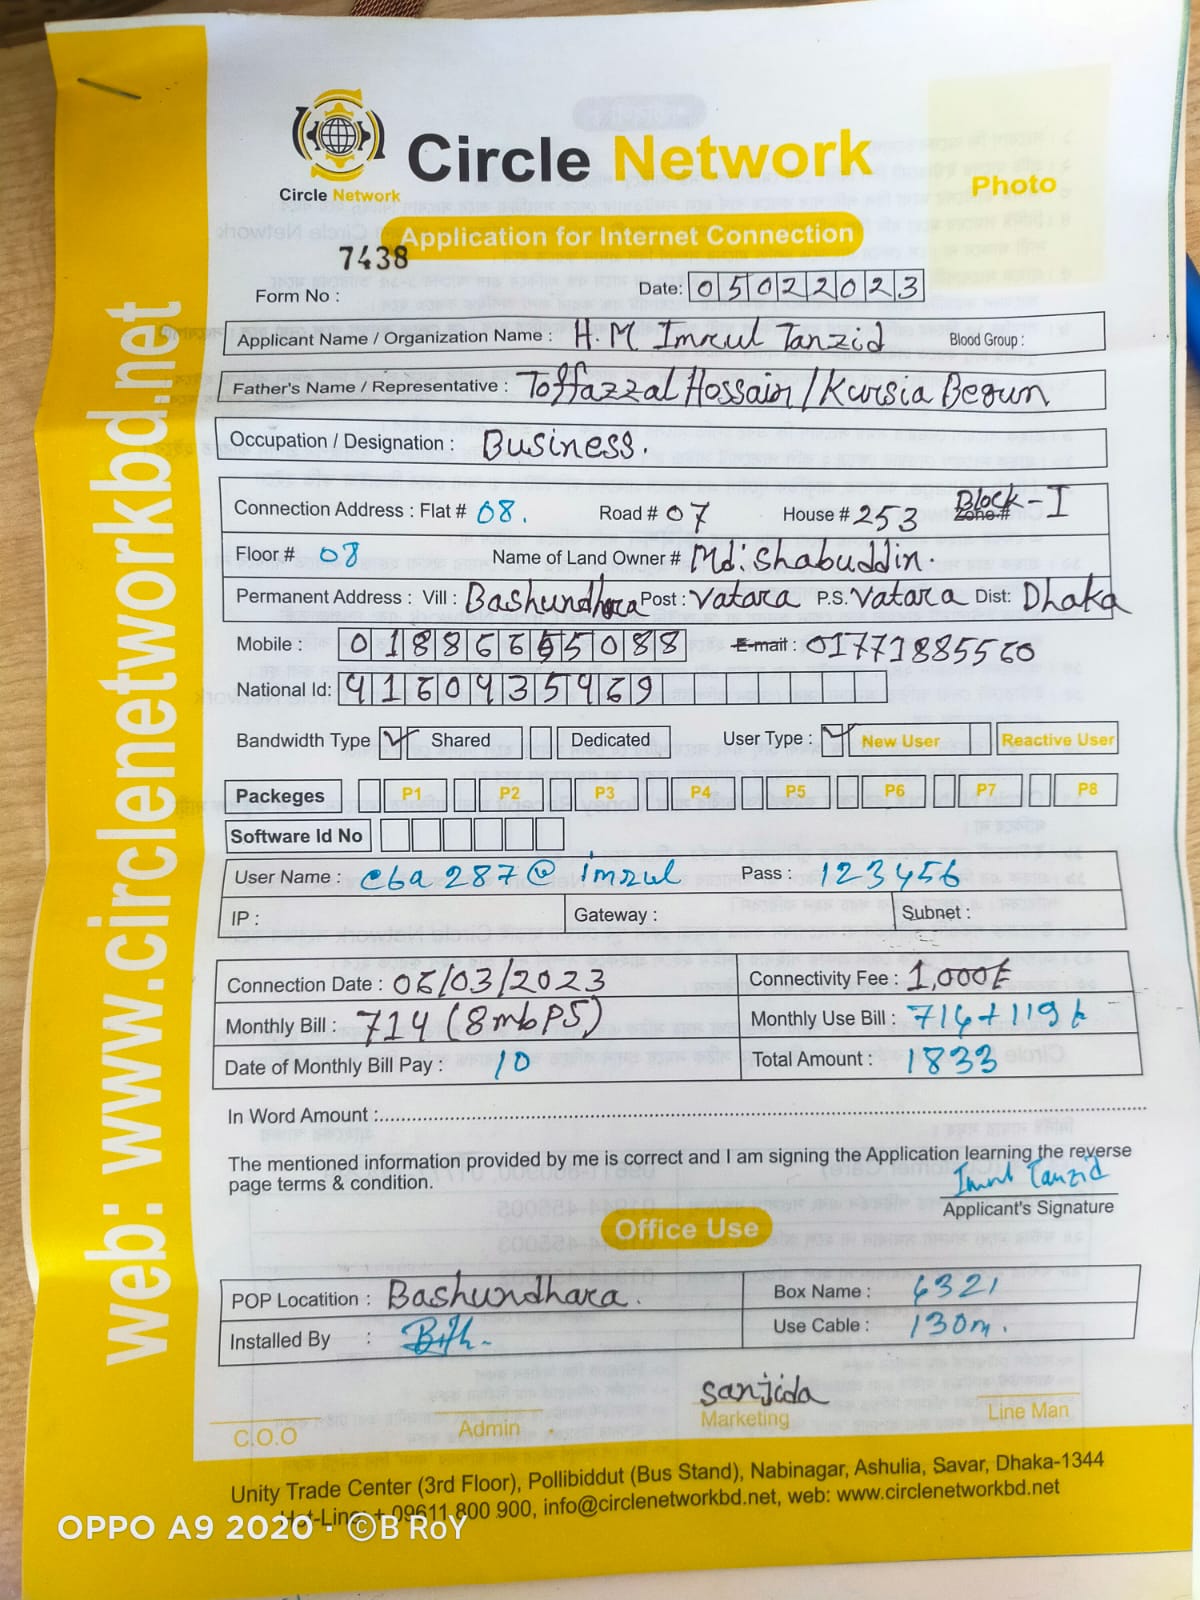 web: www.circlenetworkbd.net
Circle Network
Circle Network
Photo
Application for Internet Connection
7438
Form No :
Date: 05022023
Applicant Name / Organization Name : H.M Imrul Tanzid Blood Group :
Father's Name / Representative : Toffazzal Hossain / Kursia Begun
Occupation / Designation : Business.
Connection Address : Flat # 08. Road # 07 House # 253 Zone # Block-I
Floor # 08 Name of Land Owner # Md: Shabuddin.
Permanent Address : Vill : Bashundhara Post : Vatara P.S. Vatara Dist: Dhaka
Mobile : 01886655088 E-mail : 01771885560
National Id: 4160435469
Bandwidth Type Shared Dedicated User Type : New User Reactive User
Packeges P1 P2 P3 P4 P5 P6 P7 P8
Software Id No
User Name : cba287@imrul Pass : 123456
IP : Gateway : Subnet :
Connection Date : 06/03/2023 Connectivity Fee : 1,000৳
Monthly Bill : 714 (8mbPS) Monthly Use Bill : 714+119৳
Date of Monthly Bill Pay : 10 Total Amount : 1833
In Word Amount :
The mentioned information provided by me is correct and I am signing the Application learning the reverse
page terms & condition.
Imrul Tanzid
Applicant's Signature
Office Use
POP Locatition : Bashundhara. Box Name : 6321
Installed By : Use Cable : 130m.
Sanjida
C.O.O Admin Marketing Line Man
Unity Trade Center (3rd Floor), Pollibiddut (Bus Stand), Nabinagar, Ashulia, Savar, Dhaka-1344
Hot-Line: + 09611 800 900, info@circlenetworkbd.net, web: www.circlenetworkbd.net
OPPO A9 2020 · ©B RoY